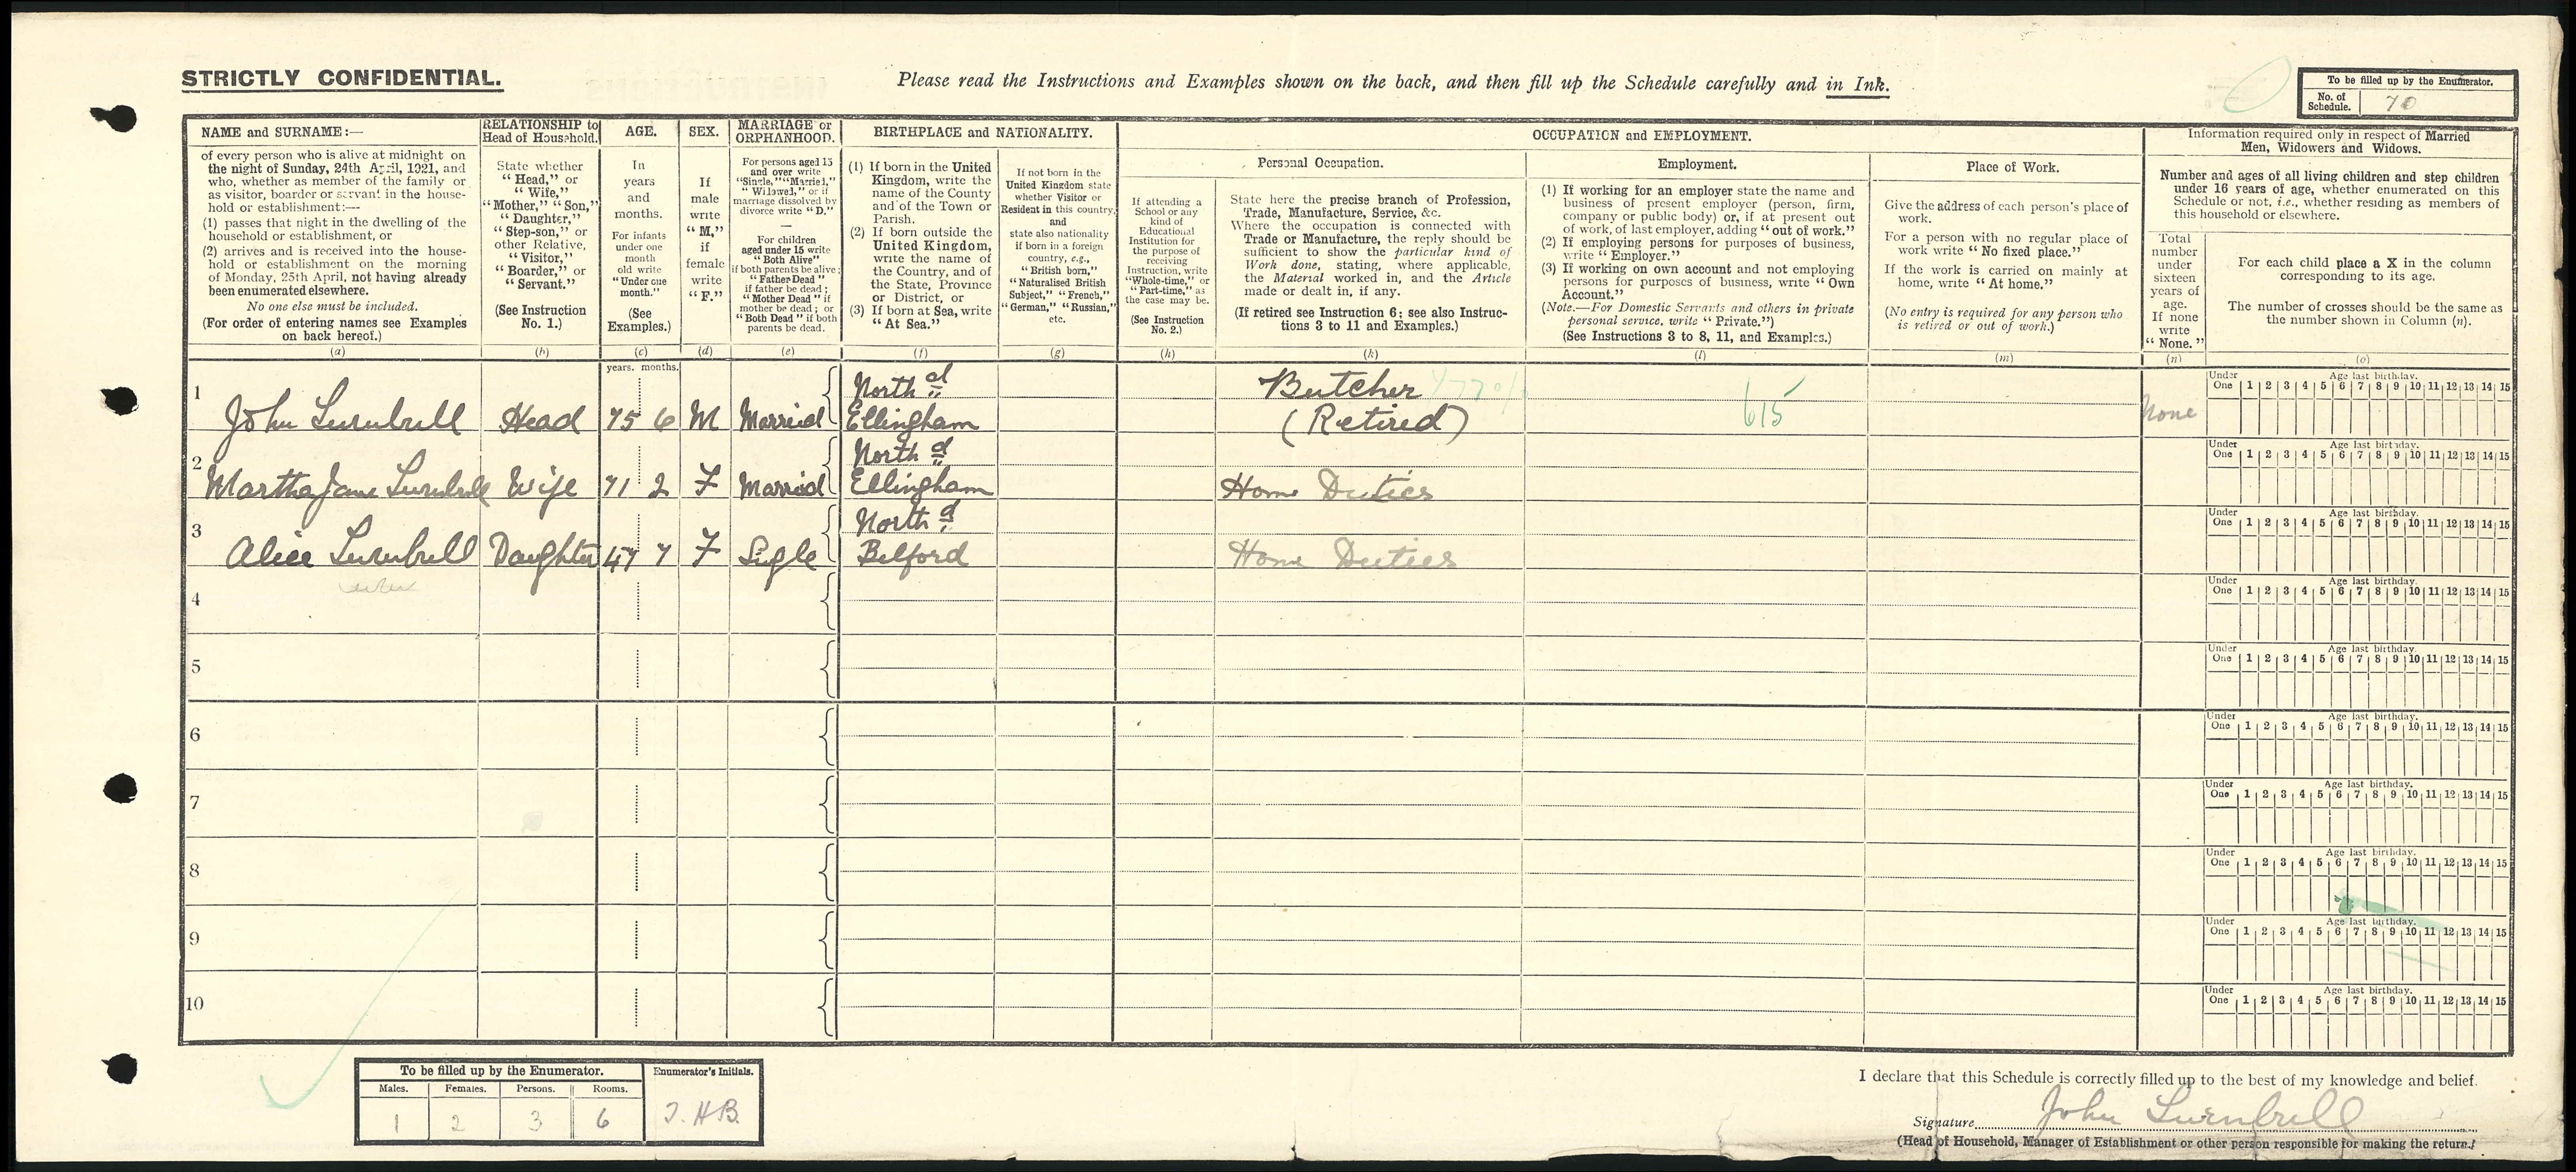 STRICTLY CONFIDENTIAL.
Please read the Instructions and Examples shown on the back, and then fill up the Schedule carefully and in Ink.
To be filled up by the Enumerator.
No. of Schedule. 70
NAME and SURNAME:—
of every person who is alive at midnight on
the night of Sunday, 24th April, 1921, and
who, whether as member of the family or
as visitor, boarder or servant in the house-
hold or establishment:—
(1) passes that night in the dwelling of the
household or establishment, or
(2) arrives and is received into the house-
hold or establishment on the morning
of Monday, 25th April, not having already
been enumerated elsewhere.
No one else must be included.
(For order of entering names see Examples
on back hereof.)
(a)
RELATIONSHIP to
Head of Household.
State whether
“Head,” or
“Wife,”
“Mother,” “Son,”
“Daughter,”
“Step-son,” or
other Relative,
“Visitor,”
“Boarder,” or
“Servant.”
(See Instruction
No. 1.)
(b)
AGE.
In
years
and
months.
For infants
under one
month
old write
“Under one
month.”
(See
Examples.)
(c)
SEX.
If
male
write
“M,”
if
female
write
“F.”
(d)
MARRIAGE or
ORPHANHOOD.
For persons aged 15
and over write
“Single,” “Married,”
“Widowed,” or if
marriage dissolved by
divorce write “D.”
—
For children
aged under 15 write
“Both Alive”
if both parents be alive;
“Father Dead”
if father be dead;
“Mother Dead” if
mother be dead; or
“Both Dead” if both
parents be dead.
(e)
BIRTHPLACE and NATIONALITY.
(1) If born in the United
Kingdom, write the
name of the County
and of the Town or
Parish.
(2) If born outside the
United Kingdom,
write the name of
the Country, and of
the State, Province
or District, or
(3) If born at Sea, write
“At Sea.”
(f)
If not born in the
United Kingdom state
whether Visitor or
Resident in this country,
and
state also nationality
if born in a foreign
country, e.g.,
“British born,”
“Naturalised British
Subject,” “French,”
“German,” “Russian,”
etc.
(g)
OCCUPATION and EMPLOYMENT.
If attending a
School or any
kind of
Educational
Institution for
the purpose of
receiving
Instruction, write
“Whole-time,” or
“Part-time,” as
the case may be.
(See Instruction
No. 2.)
(h)
Personal Occupation.
State here the precise branch of Profession,
Trade, Manufacture, Service, &c.
Where the occupation is connected with
Trade or Manufacture, the reply should be
sufficient to show the particular kind of
Work done, stating, where applicable,
the Material worked in, and the Article
made or dealt in, if any.
(If retired see Instruction 6; see also Instruc-
tions 3 to 11 and Examples.)
(k)
Employment.
(1) If working for an employer state the name and
business of present employer (person, firm,
company or public body) or, if at present out
of work, of last employer, adding “out of work.”
(2) If employing persons for purposes of business,
write “Employer.”
(3) If working on own account and not employing
persons for purposes of business, write “Own
Account.”
(Note.—For Domestic Servants and others in private
personal service, write “Private.”)
(See Instructions 3 to 8, 11, and Examples.)
(l)
Place of Work.
Give the address of each person's place of
work.
For a person with no regular place of
work write “No fixed place.”
If the work is carried on mainly at
home, write “At home.”
(No entry is required for any person who
is retired or out of work.)
(m)
Information required only in respect of Married
Men, Widowers and Widows.
Number and ages of all living children and step children
under 16 years of age, whether enumerated on this
Schedule or not, i.e., whether residing as members of
this household or elsewhere.
Total
number
under
sixteen
years of
age.
If none
write
“None.”
(n)
For each child place a X in the column
corresponding to its age.
The number of crosses should be the same as
the number shown in Column (n).
(o)
years. months.
1 North d Butcher
John Turnbull Head 75 6 M Married Ellingham (Retired) 615 None
Under One Age last birthday. 1 2 3 4 5 6 7 8 9 10 11 12 13 14 15
2 North d
Martha Jane Turnbull Wife 71 2 F Married Ellingham Home Duties
Under One Age last birthday. 1 2 3 4 5 6 7 8 9 10 11 12 13 14 15
3 North d
Alice Turnbull Daughter 47 7 F Single Belford Home Duties
Under One Age last birthday. 1 2 3 4 5 6 7 8 9 10 11 12 13 14 15
4
Under One Age last birthday. 1 2 3 4 5 6 7 8 9 10 11 12 13 14 15
5
Under One Age last birthday. 1 2 3 4 5 6 7 8 9 10 11 12 13 14 15
6
Under One Age last birthday. 1 2 3 4 5 6 7 8 9 10 11 12 13 14 15
7
Under One Age last birthday. 1 2 3 4 5 6 7 8 9 10 11 12 13 14 15
8
Under One Age last birthday. 1 2 3 4 5 6 7 8 9 10 11 12 13 14 15
9
Under One Age last birthday. 1 2 3 4 5 6 7 8 9 10 11 12 13 14 15
10
Under One Age last birthday. 1 2 3 4 5 6 7 8 9 10 11 12 13 14 15
To be filled up by the Enumerator.
Males. Females. Persons. Rooms.
1 2 3 6
Enumerator's Initials.
J. H B.
I declare that this Schedule is correctly filled up to the best of my knowledge and belief.
Signature John Turnbull
(Head of Household, Manager of Establishment or other person responsible for making the return.)